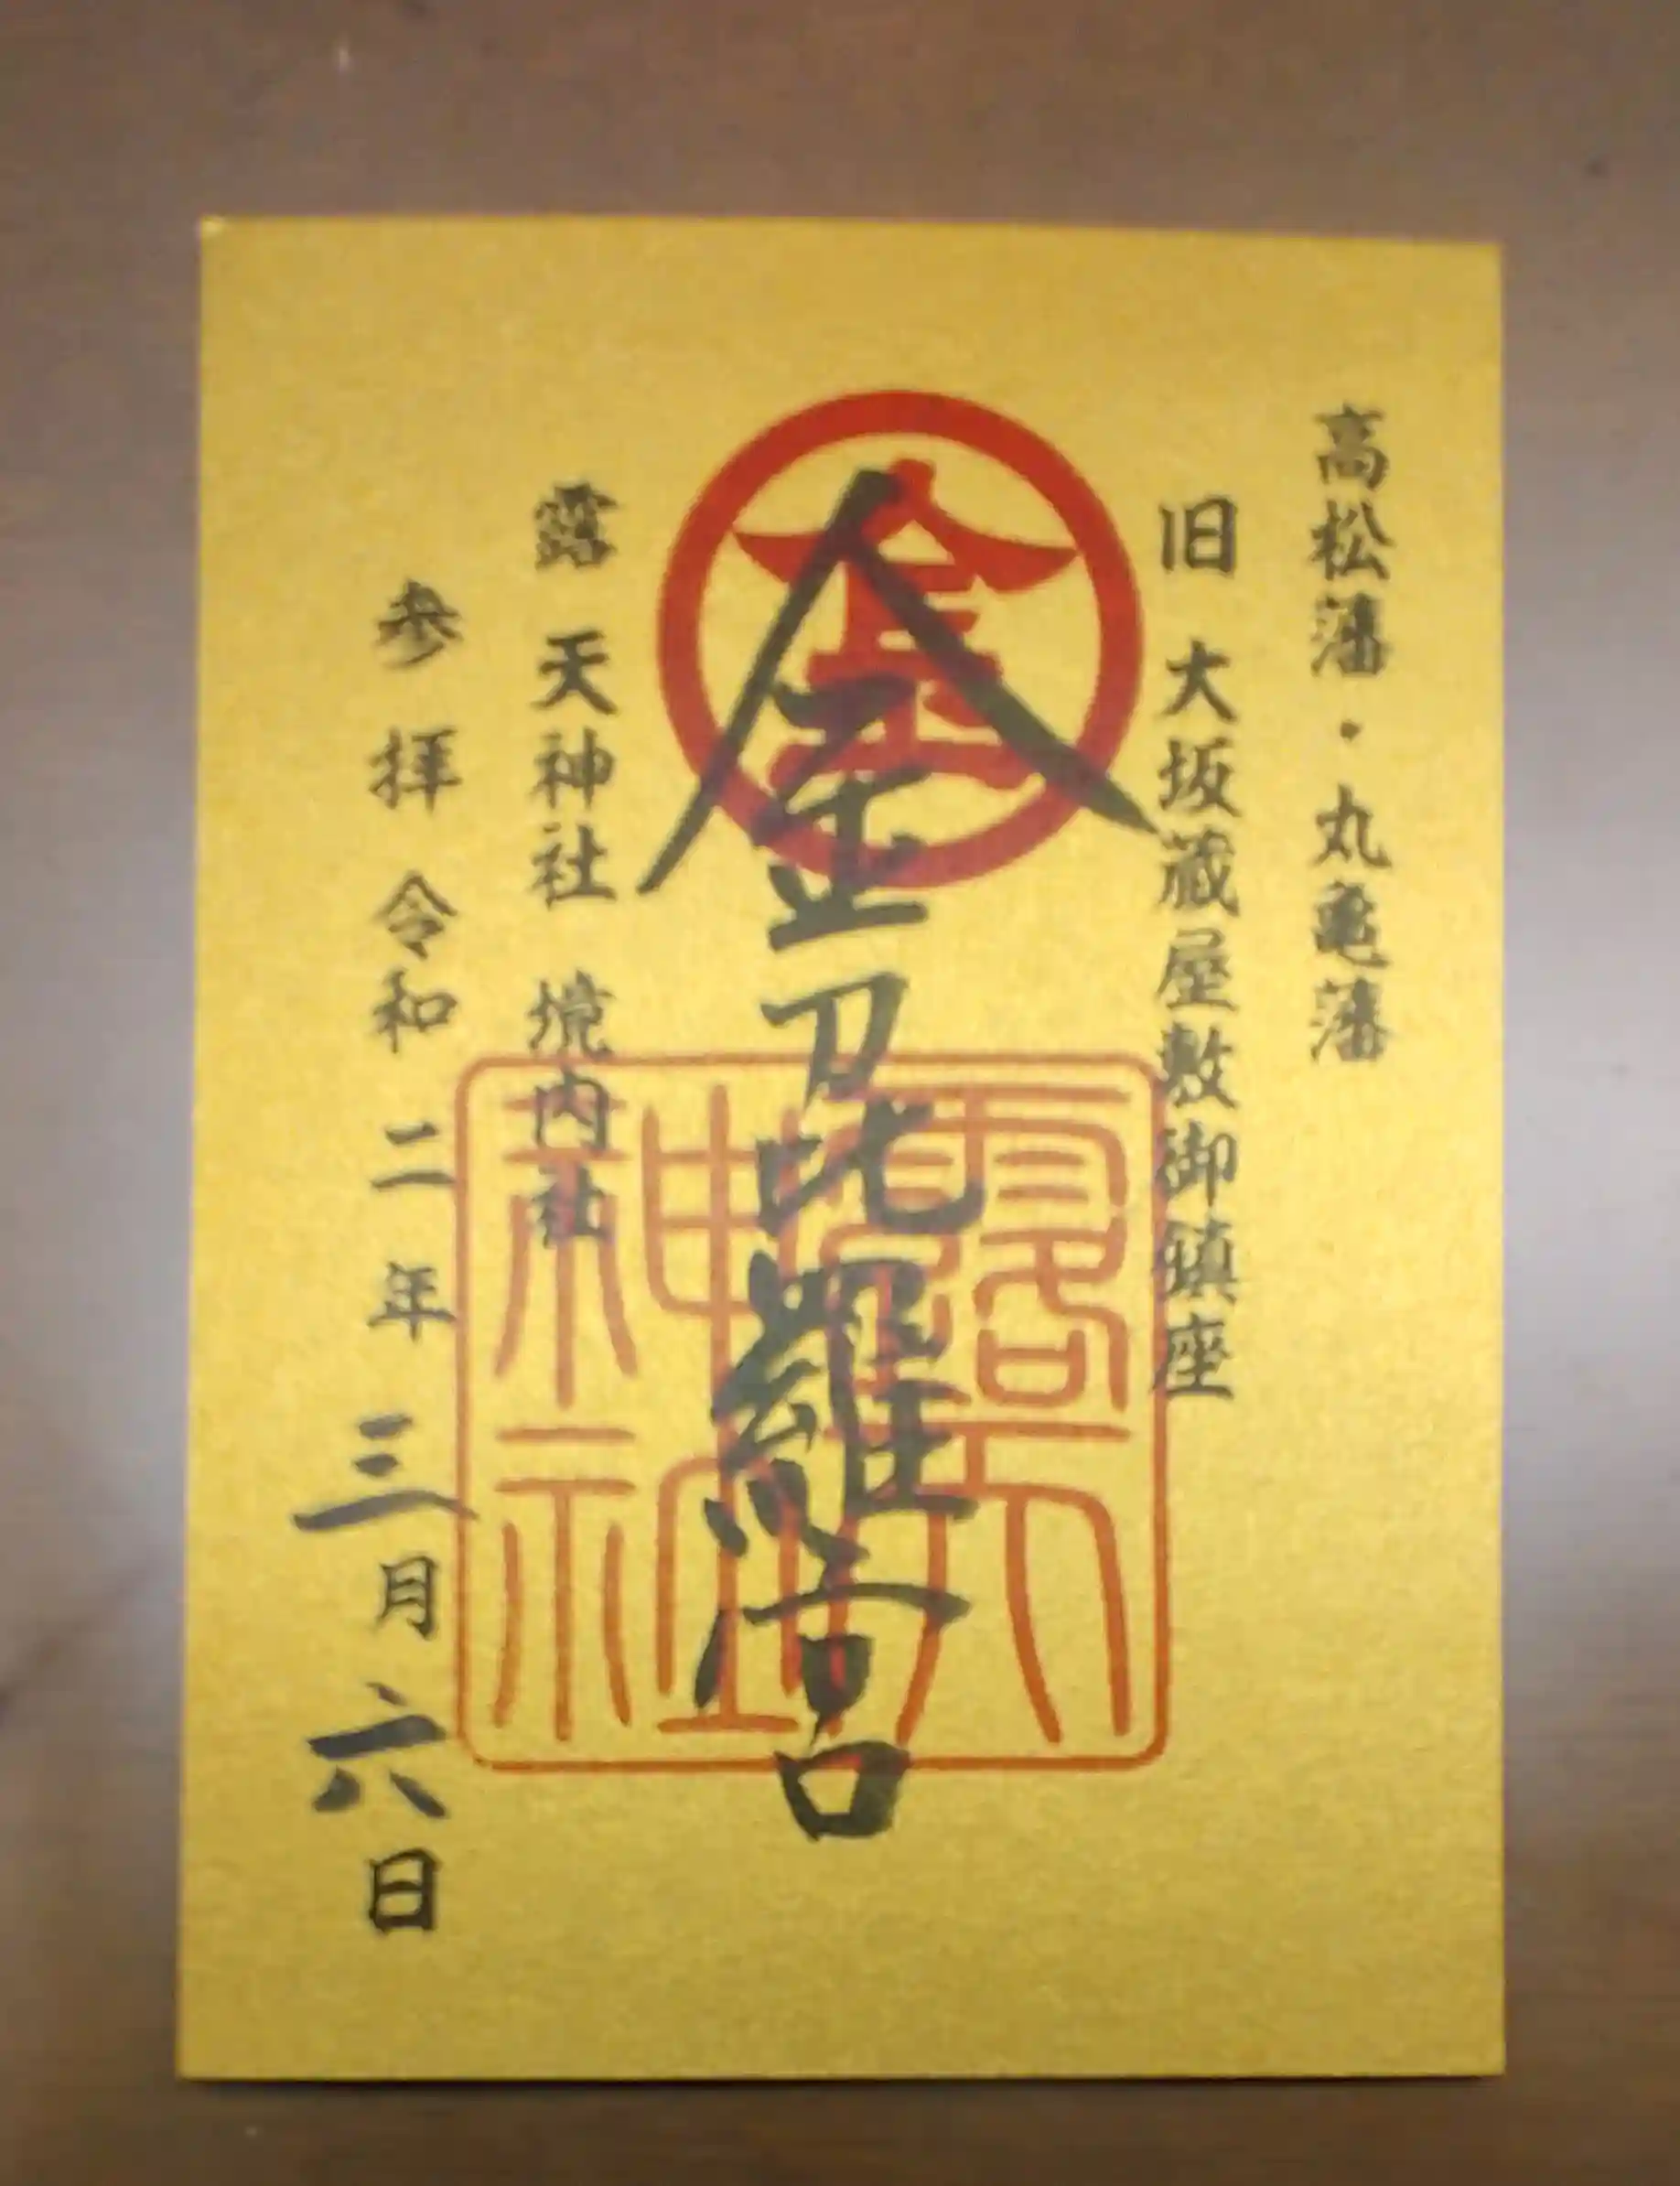 高松藩・丸亀藩
旧 大坂蔵屋敷御鎮座
金
金刀比羅宮
露天神社
露 天神社 境内社
参拝 令和 二 年 三 月 六 日